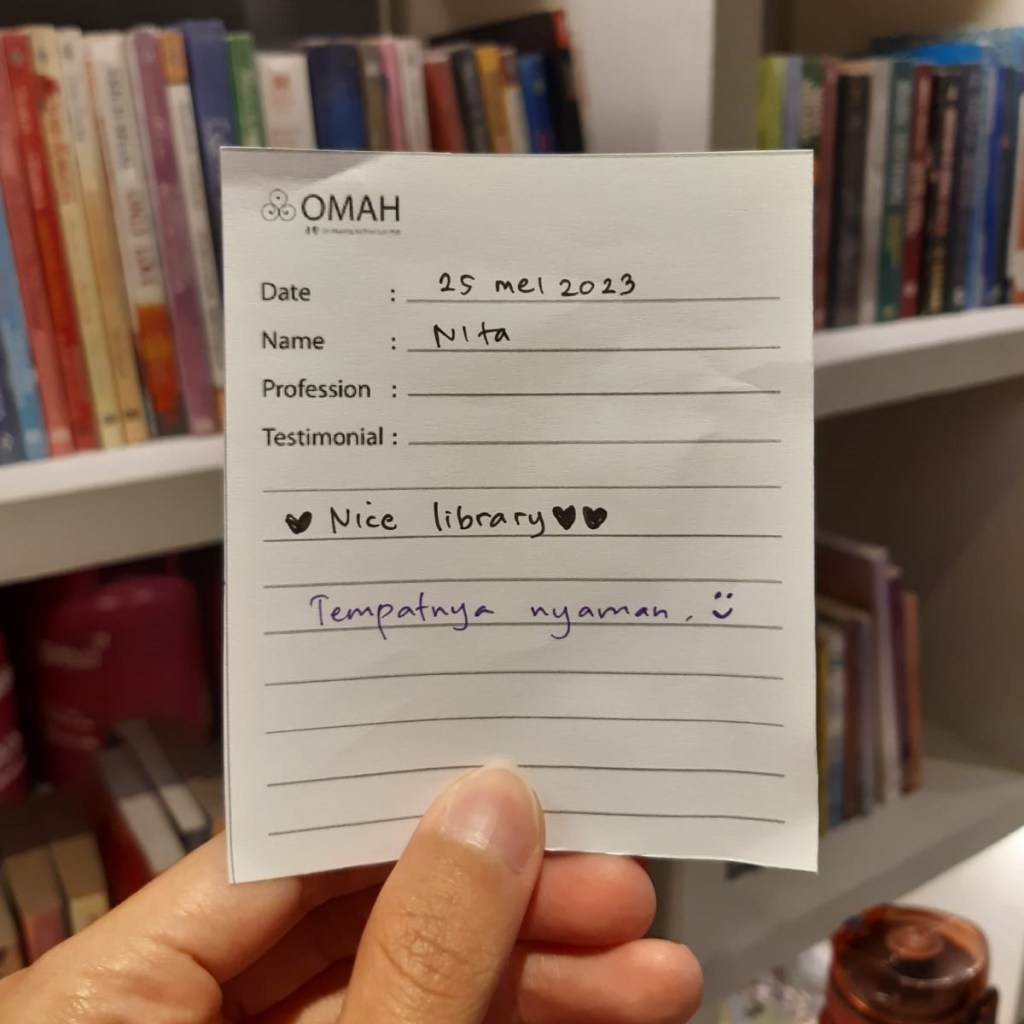 OMAH
Date : 25 Mei 2023
Name : Nita
Profession :
Testimonial :
♥ Nice library ♥♥
Tempatnya nyaman. :)